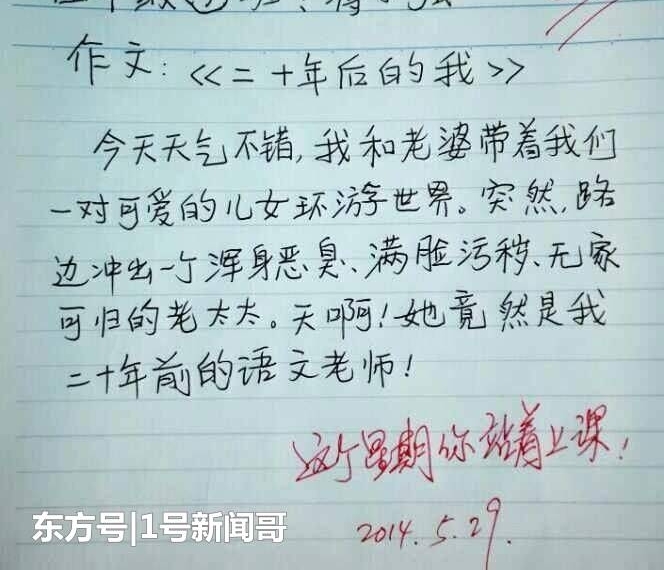 作文:《二十年后的我》
今天天气不错,我和老婆带着我们
一对可爱的儿女环游世界。突然,路
边冲出一个浑身恶臭、满脸污秽、无家
可归的老太太。天啊!她竟然是我
二十年前的语文老师!
这个星期你站着上课!
2014.5.29.
东方号|1号新闻哥